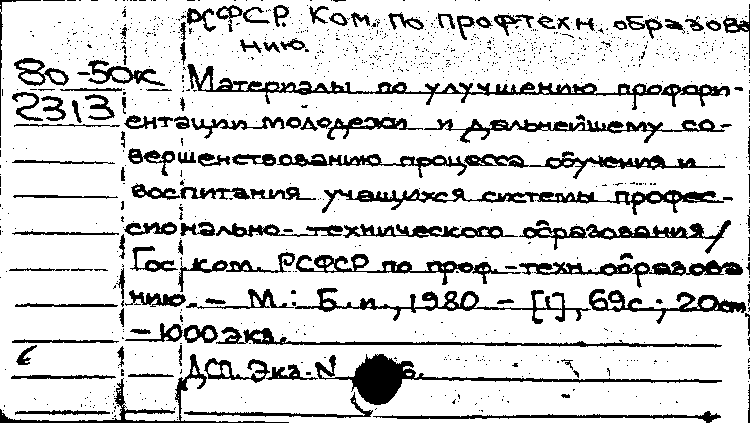 РСФСР. Ком. по профтехн. образова
нию.
80-50к Материалы по улучшению профори-
2313 ентации молодежи и дальнейшему со-
вершенствованию процесса обучения и
воспитания учащихся системы профес-
сионально-технического образования/
Гос. ком. РСФСР по проф.-техн. образова
нию. – М.: Б. и., 1980 – [1], 69с.; 20см
– 1000 экз.
ДСП. Экз. N 6.